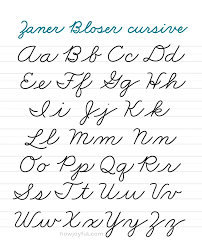 Zaner Bloser cursive
Aa Bb Cc Dd
Ee Ff Gg Hh
Ii Jj Kk
Ll Mm Nn
Oo Pp Qq Rr
Ss Tt Uu Vv
Ww Xx Yy Zz
howjoyful.com